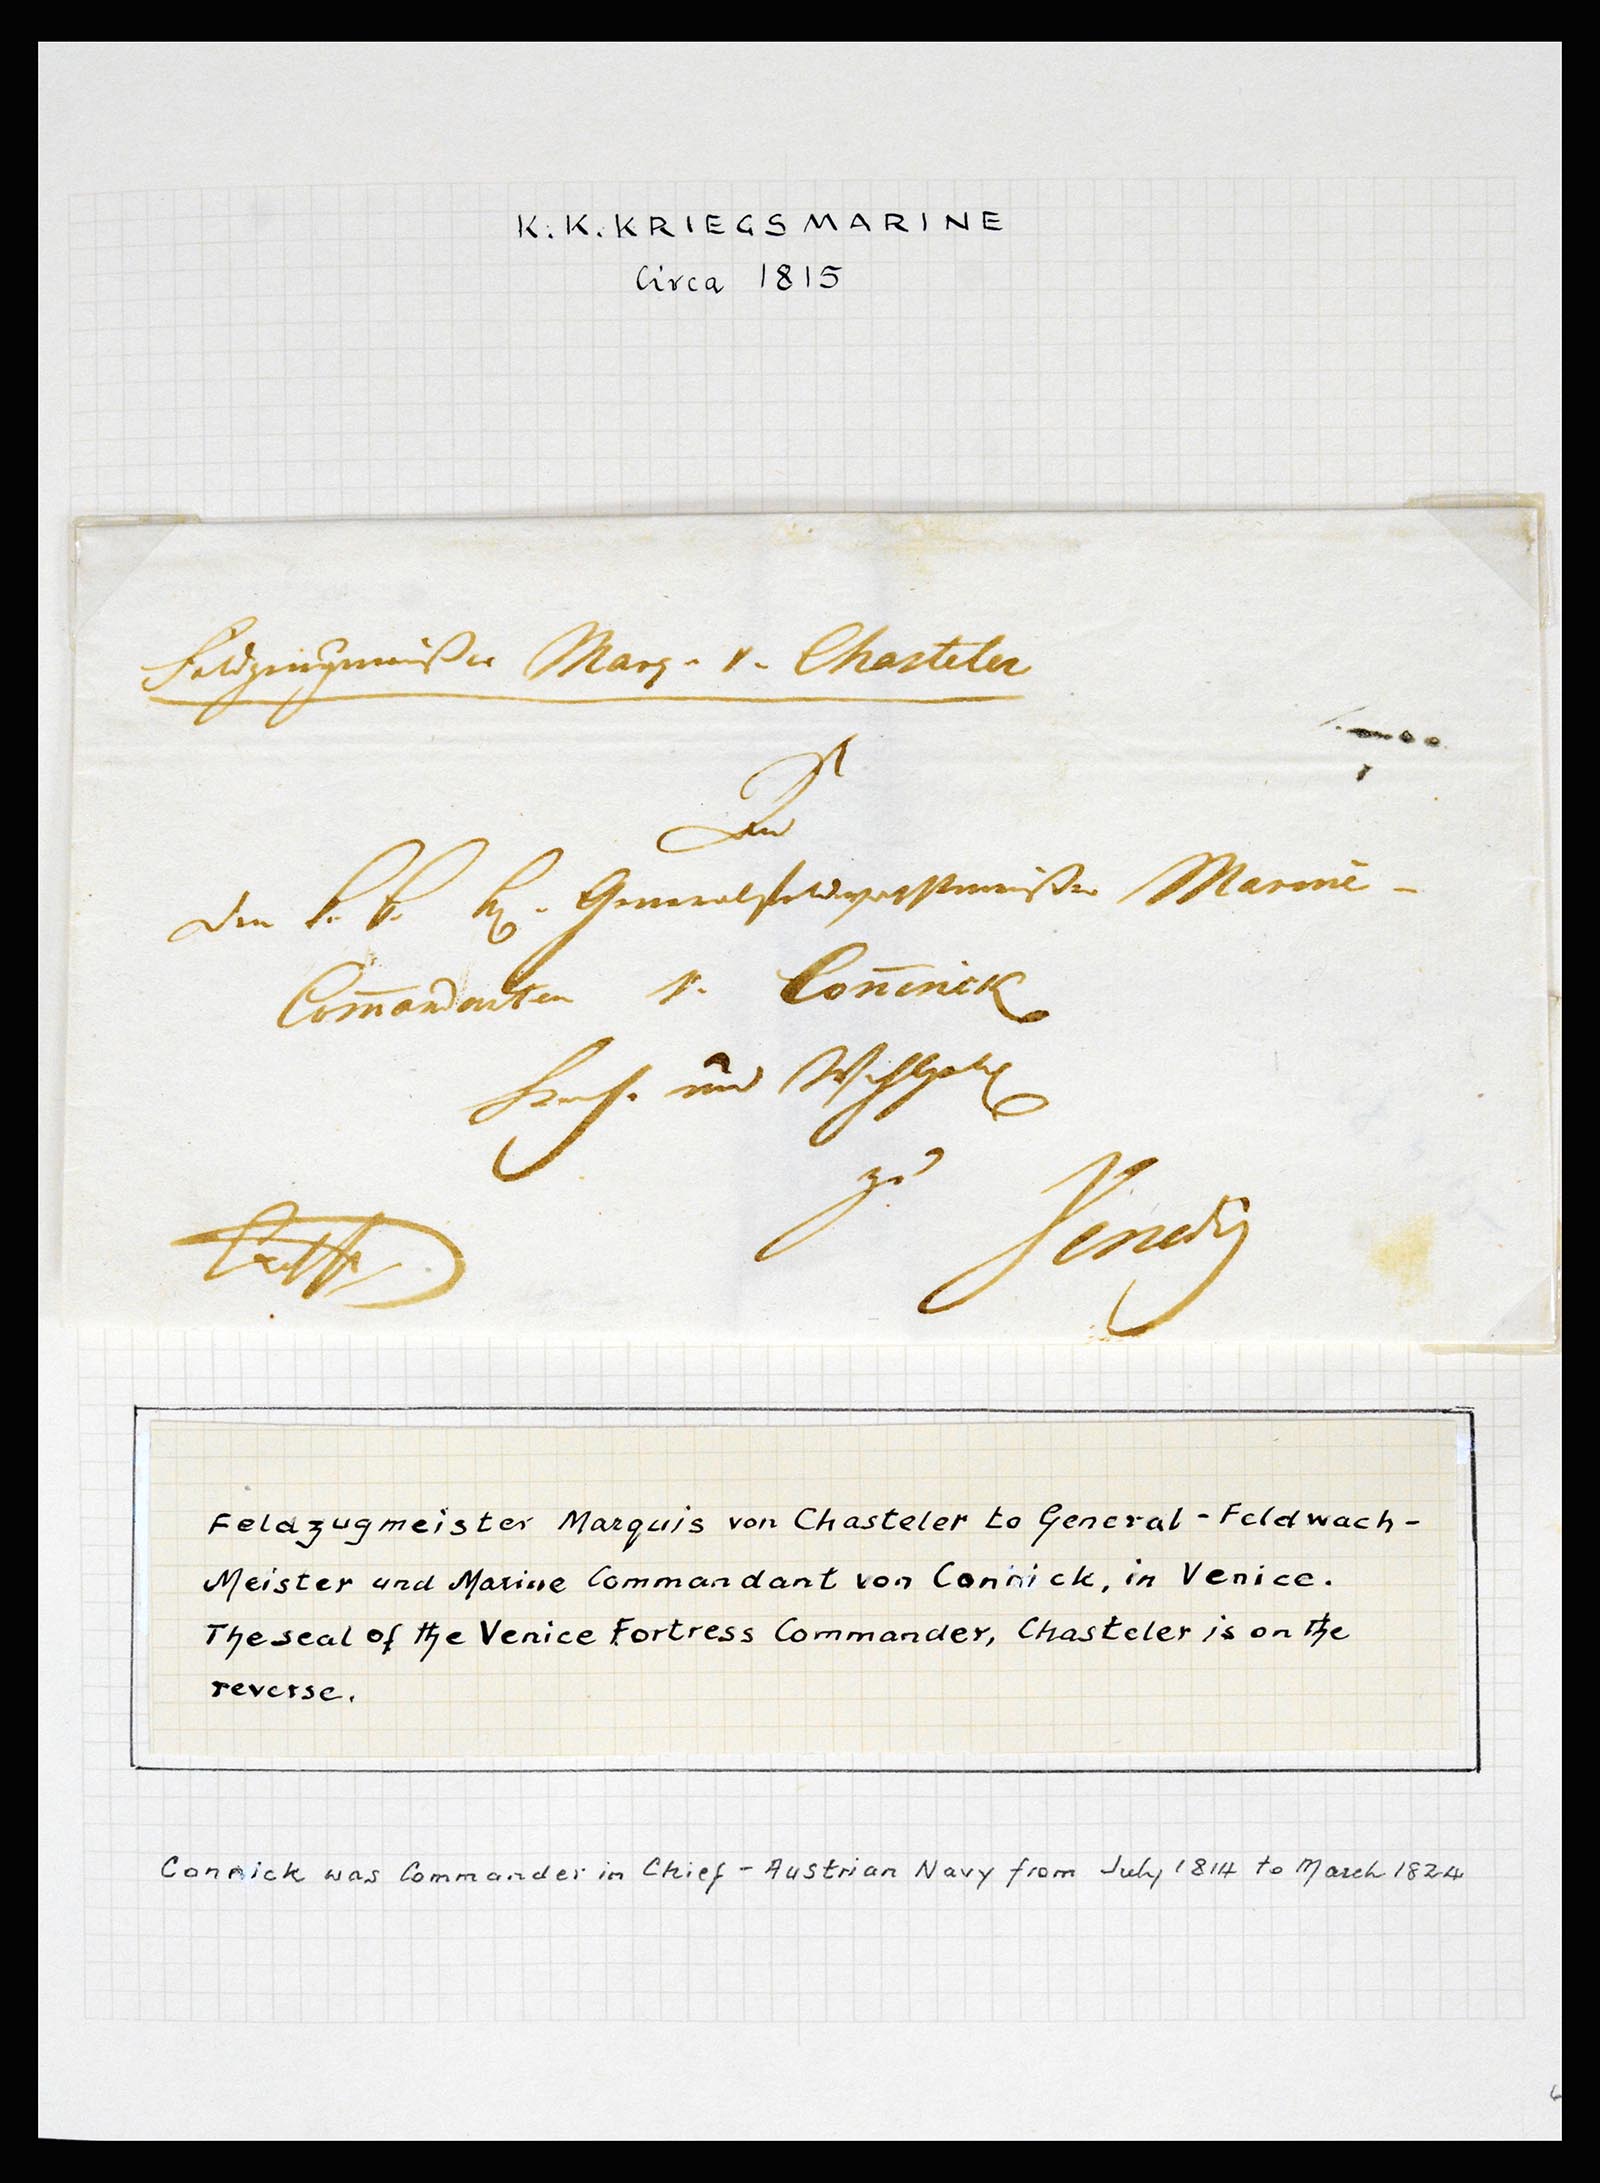 K. K. KRIEGSMARINE
Circa 1815
Feldzeugmeister Marq. v. Chasteler
An
den k. k. H. Generalfeldwachtmeister Marine-
Com̄andanten v. Con̄inick
Hoch und Wohlgeb
zu Venedig
Feldzugmeister Marquis von Chasteler to General-Feldwach-
Meister und Marine Commandant von Connick, in Venice.
The seal of the Venice Fortress Commander, Chasteler is on the
reverse.
Connick was Commander in Chief - Austrian Navy from July 1814 to March 1824